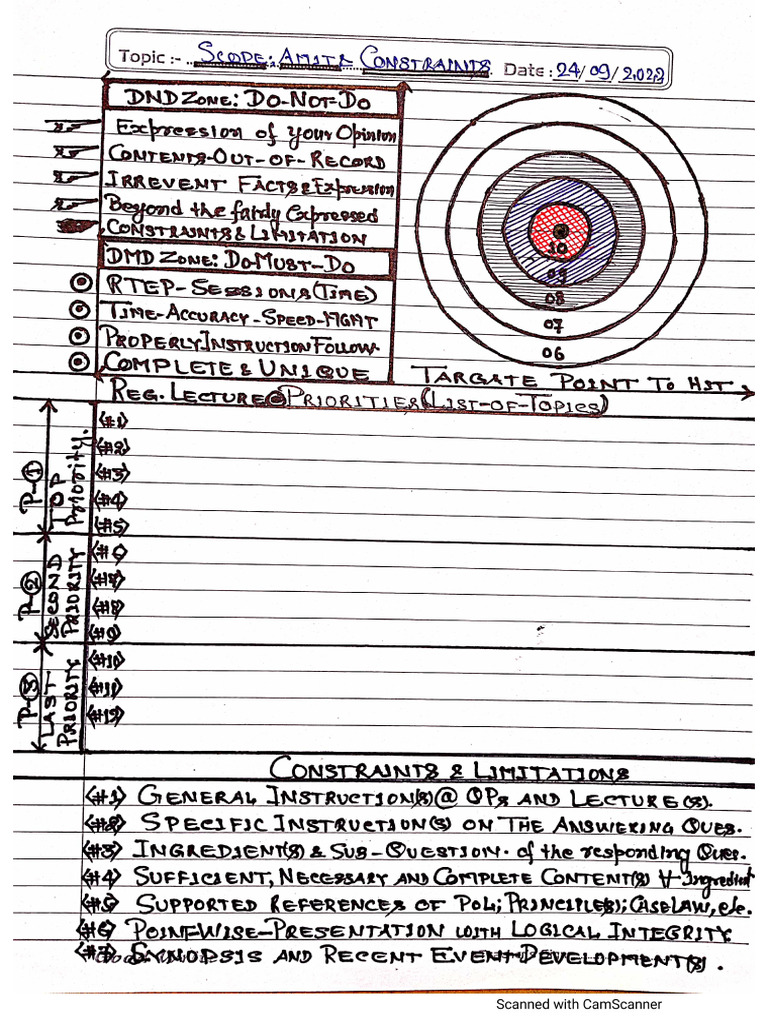 Topic :- SCOPE; LIMITS CONSTRAINTS Date : 24/09/2022
DND ZONE: DO-NOT-DO
Expression of your Opinion
CONTENTS-OUT-OF-RECORD
IRREVENT FACTS & Expression
Beyond the fairly Expressed
CONSTRAINTS & LIMITATION
DMD ZONE: DO-MUST-DO
RTEP-SESSIONS (TIME)
TIME-ACCURACY-SPEED-MGMT
PROPERLY INSTRUCTION FOLLOW.
COMPLETE & UNIQUE
10
09
08
07
06
TARGATE POINT TO HIT
REG. LECTURE @ PRIORITIES (LIST-OF-TOPICS)
P-① TOP Priority.
<#1>
<#2>
<#3>
<#4>
<#5>
P-② SECOND PRIORITY
<#6>
<#7>
<#8>
<#9>
P-③ LAST PRIORITY
<#10>
<#11>
<#12>
CONSTRAINTS & LIMITATIONS
<#1> GENERAL INSTRUCTION(S) @ QPs AND LECTURE(S).
<#2> SPECIFIC INSTRUCTION(S) ON THE ANSWERING QUES.
<#3> INGREDIENT(S) & SUB-QUESTION. of the responding Ques.
<#4> SUFFICIENT, NECESSARY AND COMPLETE CONTENT(S) ∀ Ingredient
<#5> SUPPORTED REFERENCES OF POL; PRINCIPLE(S); CASELAW, etc.
<#6> POINT-WISE-PRESENTATION WITH LOGICAL INTEGRITY
<#7> SYNOPSIS AND RECENT EVENT DEVELOPMENT(S).
Scanned with CamScanner